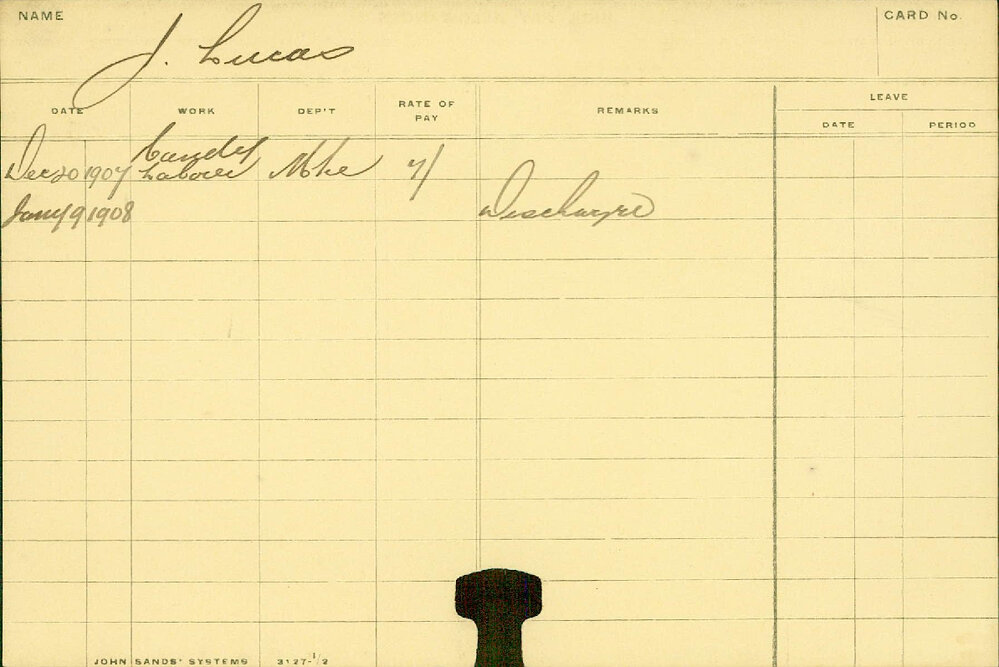 NAME
J. Lucas
CARD No.
DATE WORK DEP'T RATE OF PAY REMARKS LEAVE
DATE PERIOD
Dec 20 1907 Labourer Mtce 7/
Jany 9 1908 Discharged
JOHN SANDS' SYSTEMS 3127-1/2